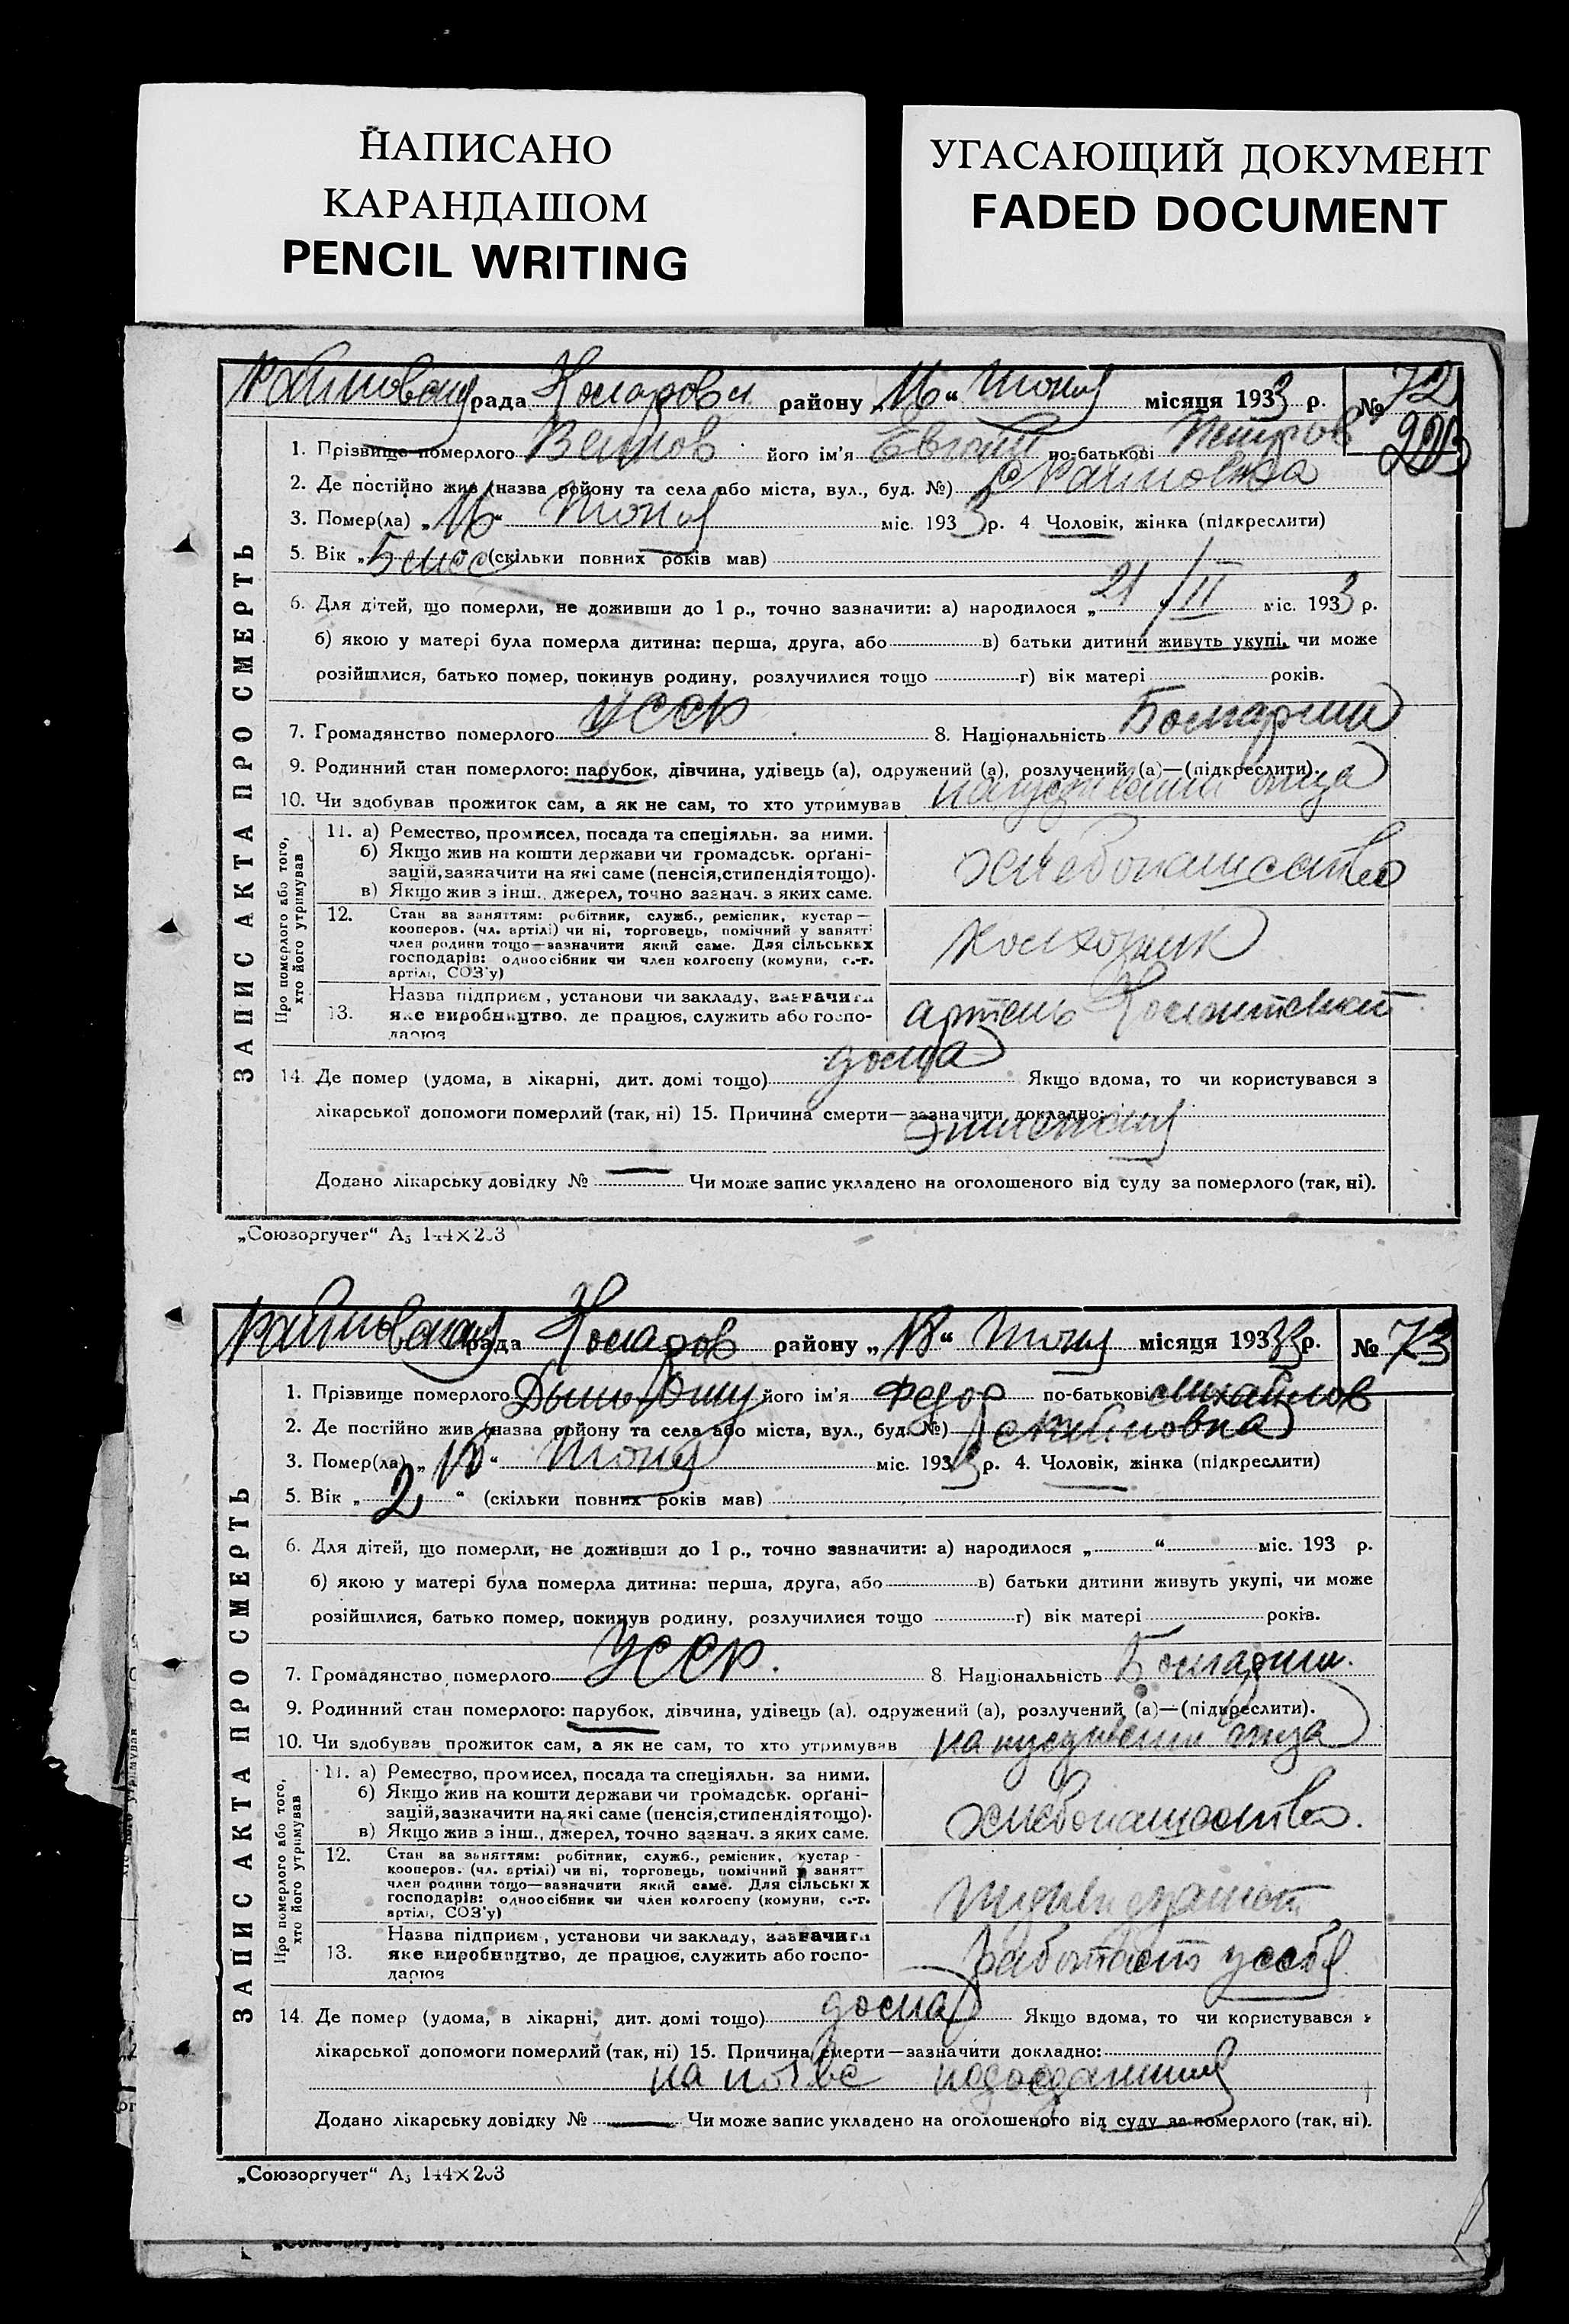 НАПИСАНО
КАРАНДАШОМ
PENCIL WRITING
УГАСАЮЩИЙ ДОКУМЕНТ
FADED DOCUMENT
ЗАПИС АКТА ПРО СМЕРТЬ
рада района „16“ Июня місяця 1933 р. № 72
203
1. Прізвище померлого його ім'я Евгений по-батькові Петров
2. Де постійно жив (назва району та села або міста, вул., буд. №)
3. Помер(ла) „16“ Июня міс. 1933 р. 4 Чоловік, жінка (підкреслити)
5. Вік „5 мес“ (скільки повних років мав)
6. Для дітей, що померли, не доживши до 1 р., точно зазначити: а) народилося „21“ II міс. 1933 р.
б) якою у матері була померла дитина: перша, друга, або в) батьки дитини живуть укупі, чи може
розійшлися, батько помер, покинув родину, розлучилися тощо г) вік матері років.
7. Громадянство померлого УССР 8. Національність Болгарин
9. Родинний стан померлого: парубок, дівчина, удівець (а), одружений (а), розлучений (а)—(підкреслити).
10. Чи здобував прожиток сам, а як не сам, то хто утримував на иждивении отца
Про померлого або того, хто його утримував
11. а) Ремество, промисел, посада та спеціяльн. за ними.
б) Якщо жив на кошти держави чи громадськ. орґані-
зацій, зазначити на які саме (пенсія, стипендія тощо).
в) Якщо жив з інш. джерел, точно зазнач. з яких саме.
хлебопашество
12. Стан за заняттям: робітник, служб., ремісник, кустар—
кооперов. (чл. артілі) чи ні, торговець, помічний у занятті
член родини тощо—зазначити який саме. Для сільських
господарів: одноосібник чи член колгоспу (комуни, с.-г.
артілі, СОЗ'у)
колхозник
13. Назва підприєм, установи чи закладу, зазначити
яке виробництво, де працює, служить або госпо-
дарює
артель
14. Де помер (удома, в лікарні, дит. домі тощо) дома Якщо вдома, то чи користувався з
лікарської допомоги померлий (так, ні) 15. Причина смерти—зазначити докладно:
Додано лікарську довідку № — Чи може запис укладено на оголошеного від суду за померлого (так, ні).
„Союзоргучет“ А5 144×203
ЗАПИС АКТА ПРО СМЕРТЬ
рада району „18“ Июня місяця 1933 р. № 73
1. Прізвище померлого його ім'я Федор по-батькові Михайлов
2. Де постійно жив (назва району та села або міста, вул., буд. №)
3. Помер(ла) „18“ Июня міс. 1933 р. 4. Чоловік, жінка (підкреслити)
5. Вік „2“ (скільки повних років мав)
6. Для дітей, що померли, не доживши до 1 р., точно зазначити: а) народилося „ “ міс. 193 р.
б) якою у матері була померла дитина: перша, друга, або в) батьки дитини живуть укупі, чи може
розійшлися, батько помер, покинув родину, розлучилися тощо г) вік матері років.
7. Громадянство померлого УССР. 8 Національність Болгарин.
9. Родинний стан померлого: парубок, дівчина, удівець (а), одружений (а), розлучений (а)—(підкреслити).
10. Чи здобував прожиток сам, а як не сам, то хто утримував на иждивении отца
Про померлого або того, хто його утримував
11. а) Ремество, промисел, посада та спеціяльн. за ними.
б) Якщо жив на кошти держави чи громадськ. орґані-
зацій, зазначити на які саме (пенсія, стипендія тощо).
в) Якщо жив з інш., джерел, точно зазнач. з яких саме.
хлебопашество.
12. Стан за заняттям: робітник, служб., ремісник, кустар-
кооперов. (чл. артілі) чи ні, торговець, помічний у занятт
член родини тощо—зазначити який саме. Для сільських
господарів: одноосібник чи член колгоспу (комуни, с.-г.
артілі, СОЗ'у)
13. Назва підприєм, установи чи закладу, зазначити
яке виробництво, де працює, служить або госпо-
дарює
работает у себя
14. Де помер (удома, в лікарні, дит. домі тощо) дома Якщо вдома, то чи користувався з
лікарської допомоги померлий (так, ні) 15. Причина смерти—зазначити докладно:
на почве недоедания
Додано лікарську довідку № — Чи може запис укладено на оголошеного від суду за померлого (так, ні).
„Союзоргучет“ А5 144×203